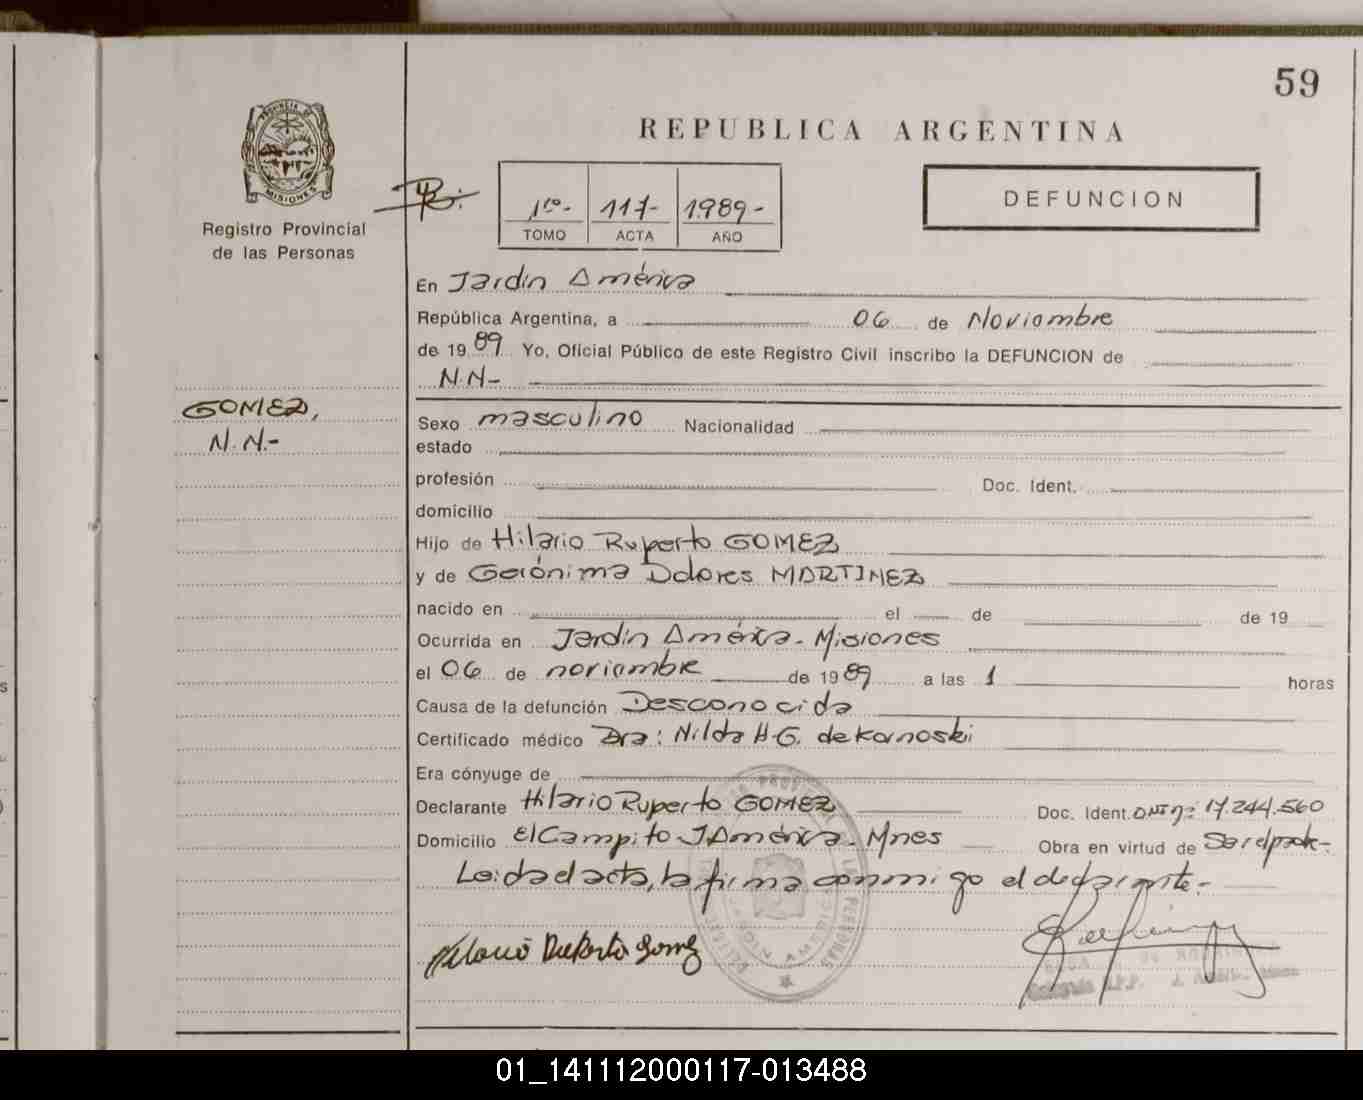 59
PROVINCIA DE
MISIONES
Registro Provincial
de las Personas
REPUBLICA ARGENTINA
DEFUNCION
1ro- 117- 1989-
TOMO ACTA AÑO
En Jardín América
República Argentina, a 06 de Noviembre
de 1989 Yo, Oficial Público de este Registro Civil inscribo la DEFUNCION de
N.N-
GOMEZ,
N.N.-
Sexo masculino Nacionalidad
estado
profesión Doc. Ident.
domicilio
Hijo de Hilario Ruperto GOMEZ
y de Gerónima Dolores MARTINEZ
nacido en el de de 19
Ocurrida en Jardín América - Misiones
el 06 de noviembre de 1989 a las 1 horas
Causa de la defunción Desconocida
Certificado médico Dra: Nilda H-G. de Karnoski
Era cónyuge de
Declarante Hilario Ruperto GOMEZ Doc. Ident. DNI nº: 17.244.560
Domicilio El Campito - J América - Mnes Obra en virtud de Ser el padre-
Leída el acta, la firma conmigo el declarante.-
Hilario Ruperto Gomez
01_141112000117-013488